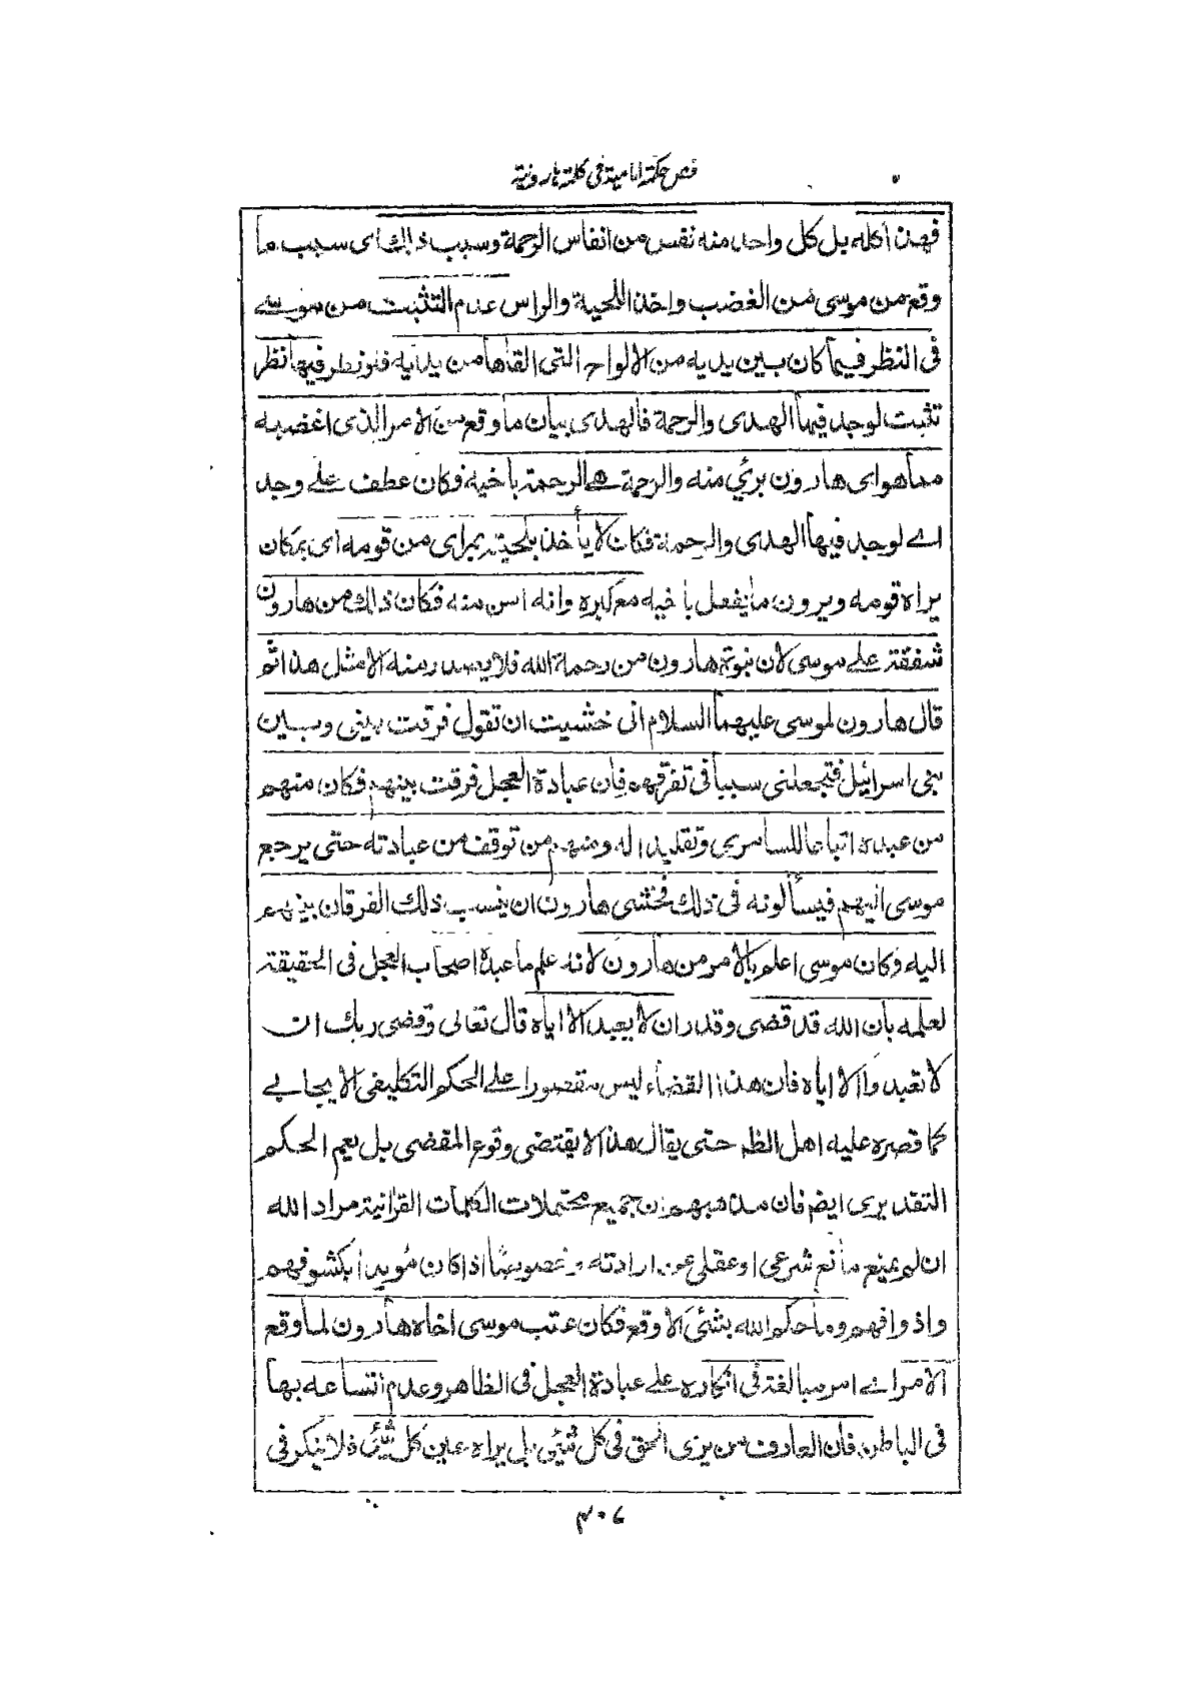 فص حكمة امامية فى كلمة هارونية
فهذا كله بل كل واحد منه نفس من انفاس الرحمة وسبب ذالك اى سبب ما
وقع من موسى من الغضب واخذ اللحية والراس عدم التثبت من موسے
فى النظر فيما كان بين يديه من الالواح التى القاها من يديه فلو نظر فيها نظر
تثبت لوجد فيها الهدى والرحمة فالهدى بيان ما وقع من الامر الذى اغضبه
مما هو اى هارون برئ منه والرحمة هے الرحمة باخيه فكان عطف علے وجد
اے لوجد فيها الهدى والرحمة فكان لا يأخذ بلحيته بمراى من قومه اى بمكان
يراه قومه ويرون ما يفعل باخيه مع كبره وانه اسن منه فكان ذالك من هارون
شفقة علے موسى لان نبوة هارون من رحمة الله فلا يصدر منه الا مثل هذا ثم
قال هارون لموسى عليهما السلام انى خشيت ان تقول فرقت بينى وبين
بنى اسرائيل فتجعلنى سببا فى تفرقهم فان عبادة العجل فرقت بينهم فكان منهم
من عبده اتباعا للسامرى وتقليدا له ومنهم من توقف من عبادته حتى يرجع
موسى اليهم فيسألونه فى ذلك فخشى هارون ان ينسب ذلك الفرقان بينهم
اليه وكان موسى اعلم بالامر من هارون لانه علم ما عبده اصحاب العجل فى الحقيقة
لعلمه بان الله قد قضى وقدر ان لا يعبد الا اياه قال تعالى وقضى ربك ان
لا تعبدوا الا اياه فان هذا القضاء ليس مقصورا على الحكم التكليفى الايجابے
كما قصره عليه اهل الظ حتى يقال هذا لا يقتضى وقوع المقضى بل يعم الحكم
التقديرى ايض فان مذهبهم ان جميع محتملات الكلمات القرانية مراد الله
ان لم يمنع مانع شرعى او عقلى عن ارادته وخصوصا اذا كان مويدا بكشوفهم
واذواقهم وما حكم الله بشئ الا وقع فكان عتب موسى اخاه هارون لما وقع
الامر اے امر مبالغة فى انكاره علے عبادة العجل فى الظاهر وعدم اتساعه بها
فى الباطن فان العارف من يرى الحق فى كل شئ بل يراه عين كل شئ فلا ينكر فى
٣٠٦